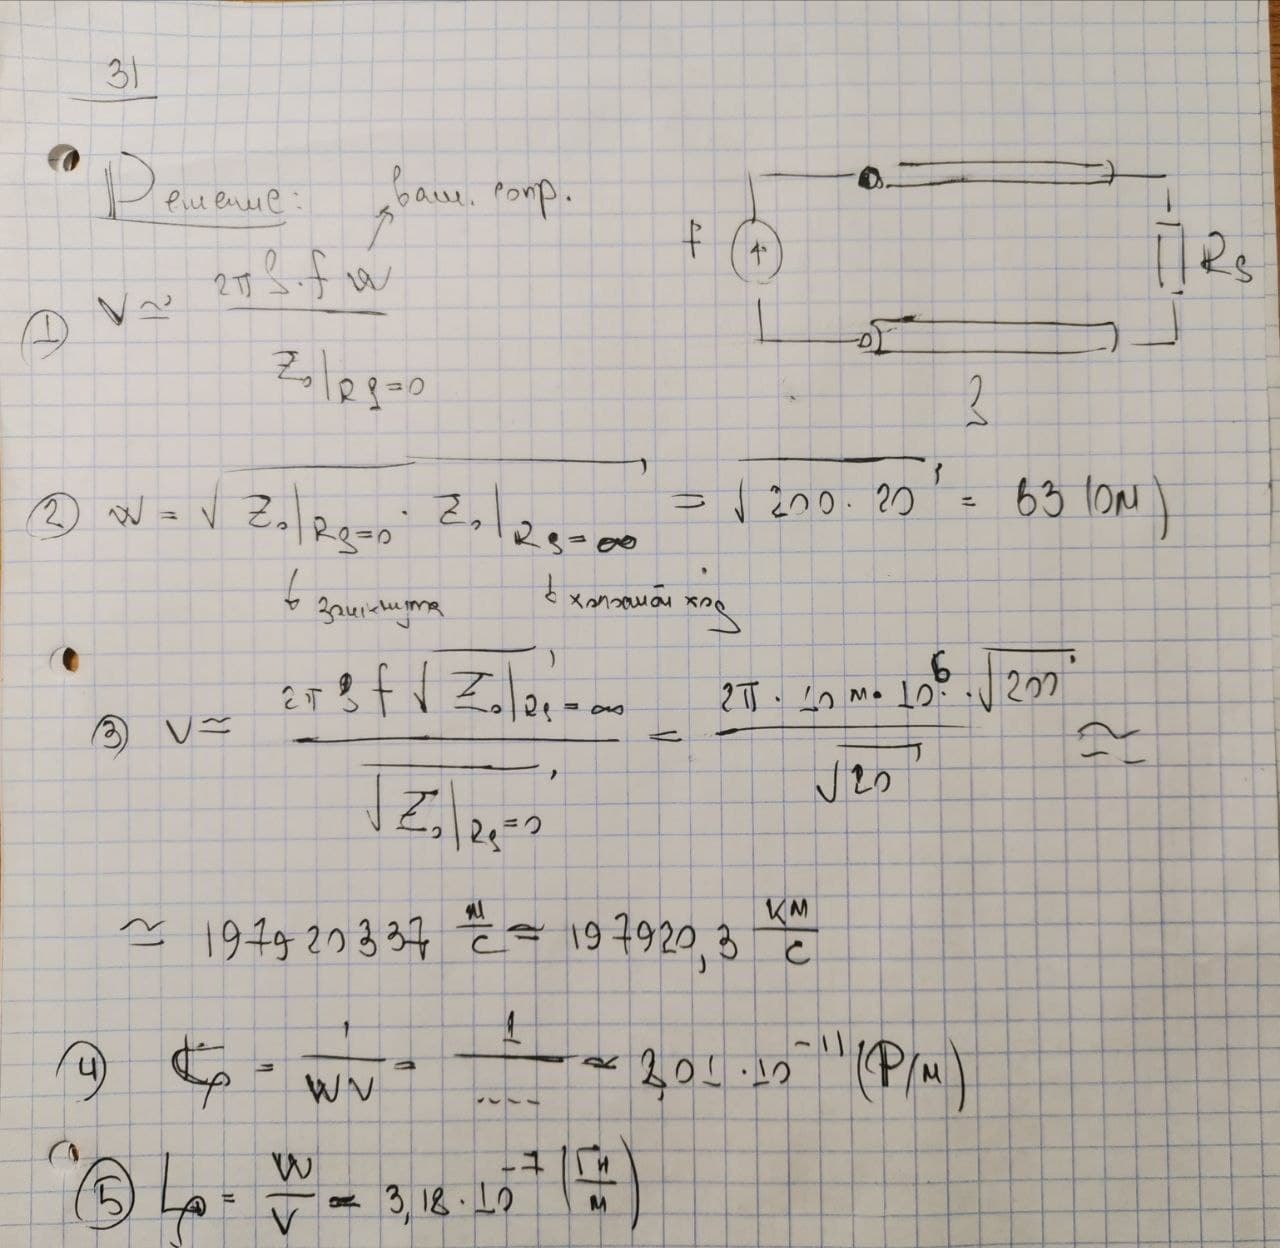 31
Решение:
волн. сопр.
① V ≃ 2π l · f W / Z₀|Rg=0
f
Rg
l
② W = √(Z₀|Rg=0 · Z₀|Rg=∞) = √(200 · 20) = 63 (Ом)
замкнута
холостой ход
③ V ≃ 2π l f √(Z₀|Rg=∞) / √(Z₀|Rg=0) = 2π · 10 м · 10⁶ · √200 / √20 ≃
≃ 197920337 м/с ≃ 197920,3 км/с
④ Cₚ = 1/WV = 1/.... ≃ 8,01 · 10⁻¹¹ (Ф/м)
⑤ Lₚ = W/V ≃ 3,18 · 10⁻⁷ (Гн/м)